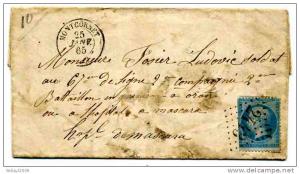 10
MONTCORNET
25
JANV.
65
Monsieur Josier Ludovic Soldat
au 67 de ligne 2e Compagnie 3me
Bataillon en a oran
ou a l'hopital a mascara
hopl de mascara